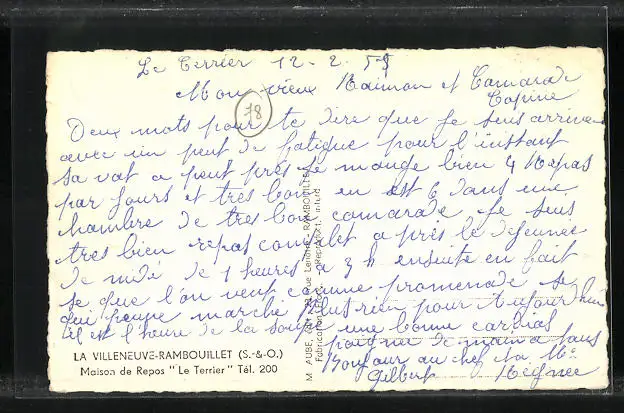 Le Terrier 12-2-55
Mon vieux Raimon et Camarade
Copine
18
Deux mots pour te dire que je suis arrivé
avec un peut de fatigue pour l'instant
sa vat a peut près je mange bien 4 Repas
par jours et très bon en est 6 dans une
chambre de tres bon camarade je suis
tres bien repas complet a près le dejeuner
de midi de 1 heures a 3 h ensuite en fait
se que l'on veut comme promenade se
qui peuve marché plus rien pour t ujour hui
il est l'heure de la soupe une bonne cordial
poignee de main a tous
Bonjour au chef
Gilbert
LA VILLENEUVE-RAMBOUILLET (S.-&-O.)
Maison de Repos " Le Terrier " Tél. 200
M. AUBE, RAMBOUILLET
Fabrication